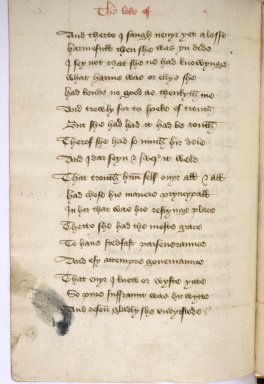 The boke of
And therto I saugh neuyr yet a lesse
harmefull then she was yn dede
I sey not that she no had knowynge
what harme was or ellys she
had konde no good as thenkyth me
And trewly for to speke of trouth
But she had had it had be routh
Therof she had so much hir dele
And I dar seyn & swer it wele
That trouth him self ouyr all & all
had chose his manere pryncypall
In hir that was his restynge place
Therto she had the moste grace
To haue stedfast perseuerannce
And esy attempre gouernannce
That euyr I knew or wyste yitte
So pure suffrannt was hir wytte
And reson gladly she vndyrstode